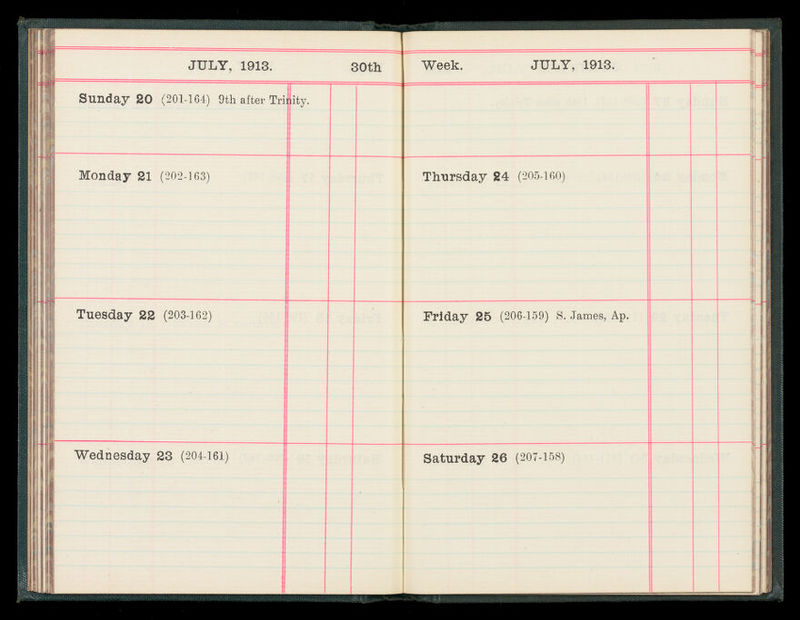 JULY, 1913. 30th
Sunday 20 (201-164) 9th after Trinity.
Monday 21 (202-163)
Tuesday 22 (203-162)
Wednesday 23 (204-161)
Week. JULY, 1913.
Thursday 24 (205-160)
Friday 25 (206-159) S. James, Ap.
Saturday 26 (207-158)